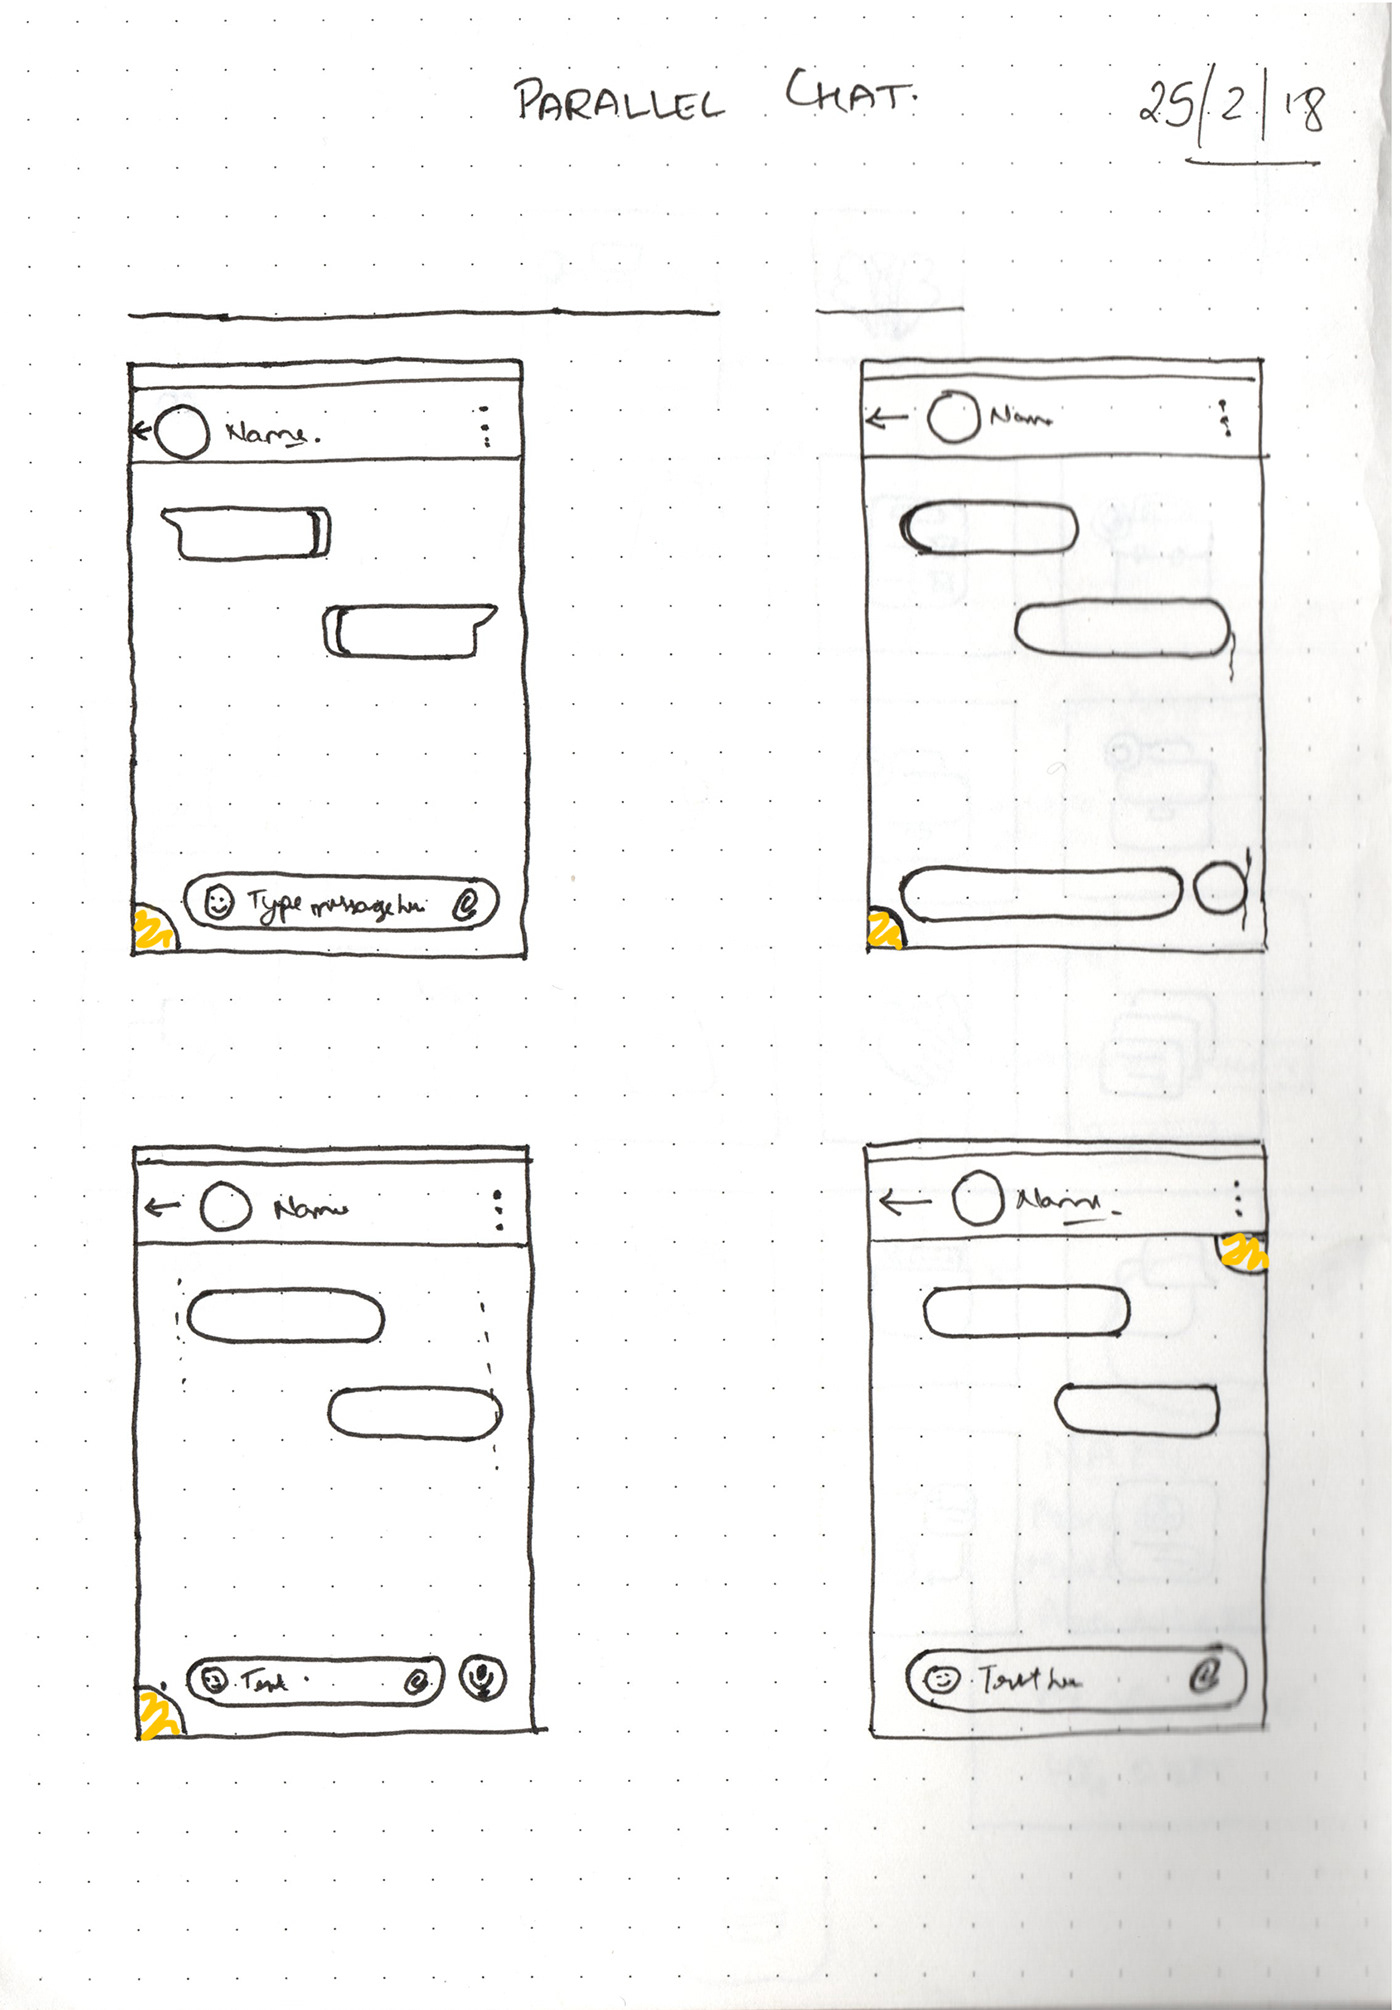 PARALLEL CHAT. 25/2/18
Name.
Name
Type message here
Name
Name.
Text
Text here